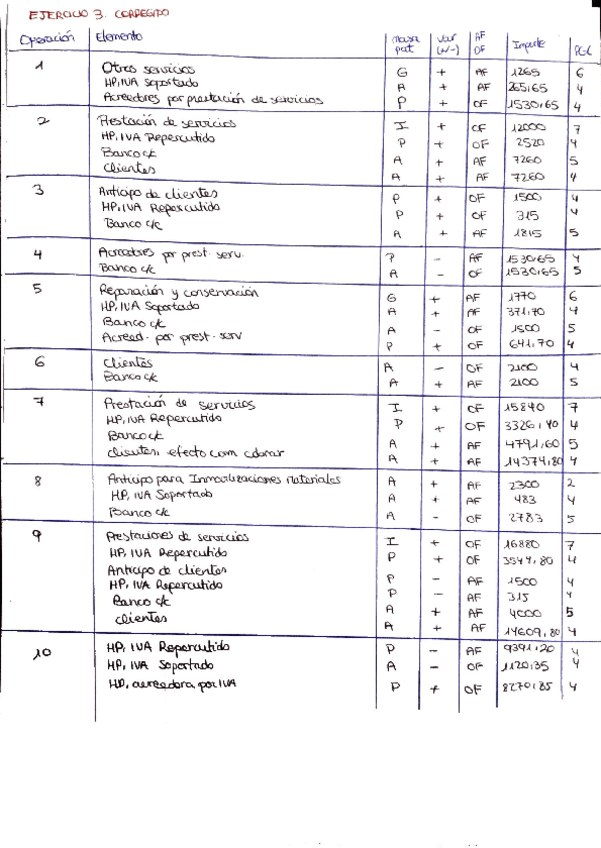 EJERCICIO 3. CORREGIDO
Operación Elemento masa pat Var (+/-) AF OF Importe PGC
1 Otros servicios G + AF 1265 6
HP, IVA Soportado A + AF 265,65 4
Acreedores por prestación de servicios P + OF 1530,65 4
2 Prestación de servicios I + OF 12000 7
HP, IVA Repercutido P + OF 2520 4
Banco c/c A + AF 7260 5
Clientes A + AF 7260 4
3 Anticipo de clientes P + OF 1500 4
HP, IVA Repercutido P + OF 315 4
Banco c/c A + AF 1815 5
4 Acreedores por prest. serv. P - AF 1530,65 4
Banco c/c A - OF 1530,65 5
5 Reparación y conservación G + AF 1770 6
HP, IVA Soportado A + AF 371,70 4
Banco c/c A - OF 1500 5
Acreed. por prest. serv P + OF 641,70 4
6 Clientes A - OF 2100 4
Banco c/c A + AF 2100 5
7 Prestación de servicios I + OF 15840 7
HP, IVA Repercutido P + OF 3326,40 4
Banco c/c A + AF 4791,60 5
clientes, efecto com cobrar A + AF 14374,80 4
8 Anticipo para Inmovilizaciones Materiales A + AF 2300 2
HP, IVA Soportado A + AF 483 4
Banco c/c A - OF 2783 5
9 Prestaciones de servicios I + OF 16880 7
HP, IVA Repercutido P + OF 3544,80 4
Anticipo de clientes P - AF 1500 4
HP, IVA Repercutido P - AF 315 4
Banco c/c A + AF 4000 5
clientes A + AF 14609,80 4
10 HP, IVA Repercutido P - AF 9391,20 4
HP, IVA Soportado A - OF 1120,35 4
HP, acreedora por IVA P + OF 8270,85 4